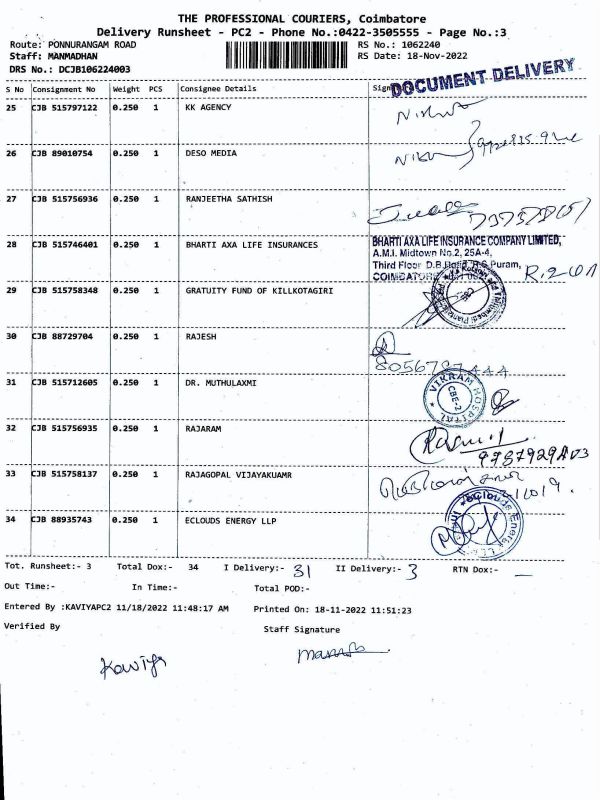 THE PROFESSIONAL COURIERS, Coimbatore
Delivery Runsheet - PC2 - Phone No.:0422-3505555 - Page No.:3
Route: PONNURANGAM ROAD RS No.: 1062240
Staff: MANMADHAN RS Date: 18-Nov-2022
DRS No.: DCJB106224003
DOCUMENT DELIVERY
S No Consignment No Weight PCS Consignee Details
25 CJB 515797122 0.250 1 KK AGENCY
26 CJB 89010754 0.250 1 DESO MEDIA
27 CJB 515756936 0.250 1 RANJEETHA SATHISH
28 CJB 515746401 0.250 1 BHARTI AXA LIFE INSURANCES
BHARTI AXA LIFE INSURANCE COMPANY LIMITED,
A.M.I. Midtown No.2, 25A-4,
Third Floor D.B. R.S.Puram,
29 CJB 515758348 0.250 1 GRATUITY FUND OF KILLKOTAGIRI
30 CJB 88729704 0.250 1 RAJESH
31 CJB 515712605 0.250 1 DR. MUTHULAXMI
VIKRAM HOSPITAL
CBE-2
32 CJB 515756935 0.250 1 RAJARAM
33 CJB 515758137 0.250 1 RAJAGOPAL VIJAYAKUAMR
34 CJB 88935743 0.250 1 ECLOUDS ENERGY LLP
Tot. Runsheet:- 3 Total Dox:- 34 I Delivery:- 31 II Delivery:- 3 RTN Dox:- —
Out Time:- In Time:- Total POD:-
Entered By :KAVIYAPC2 11/18/2022 11:48:17 AM Printed On: 18-11-2022 11:51:23
Verified By Staff Signature
Kaviya